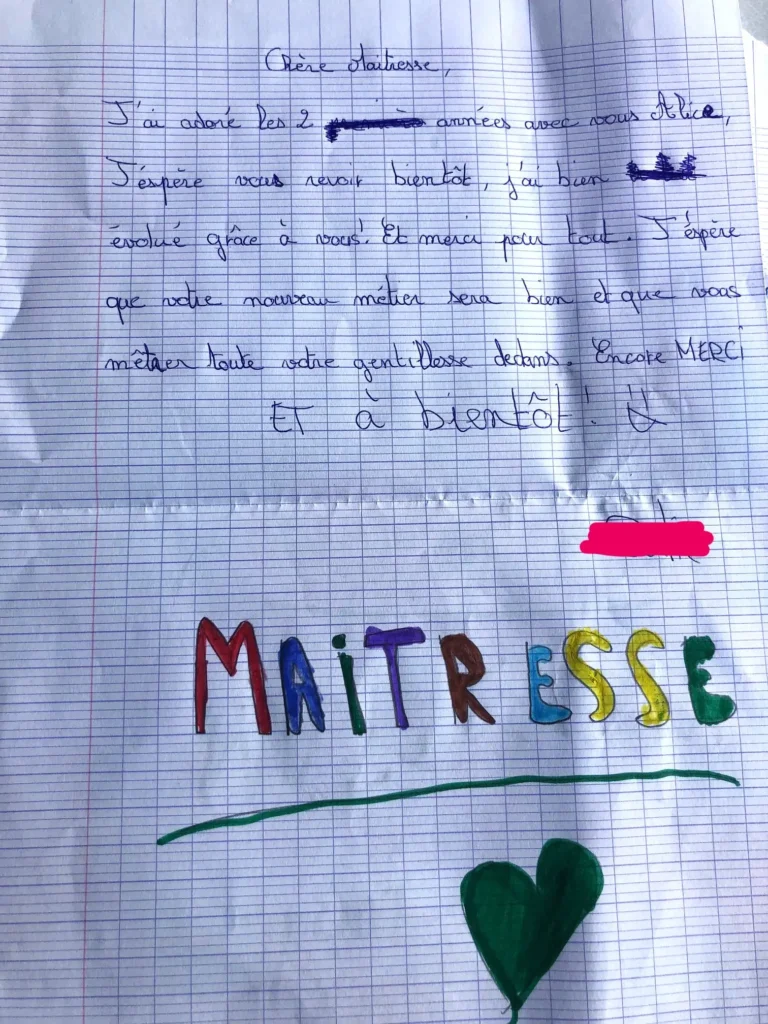 Chère Maitresse,
J'ai adoré les 2 années avec vous Alice,
J'éspère vous revoir bientôt, j'ai bien
évolué grâce à vous! Et merci pour tout. J'éspère
que votre nouveau métier sera bien et que vous
toute votre gentillesse dedans. Encore MERCI
ET à bientôt!
MAiTRESSE